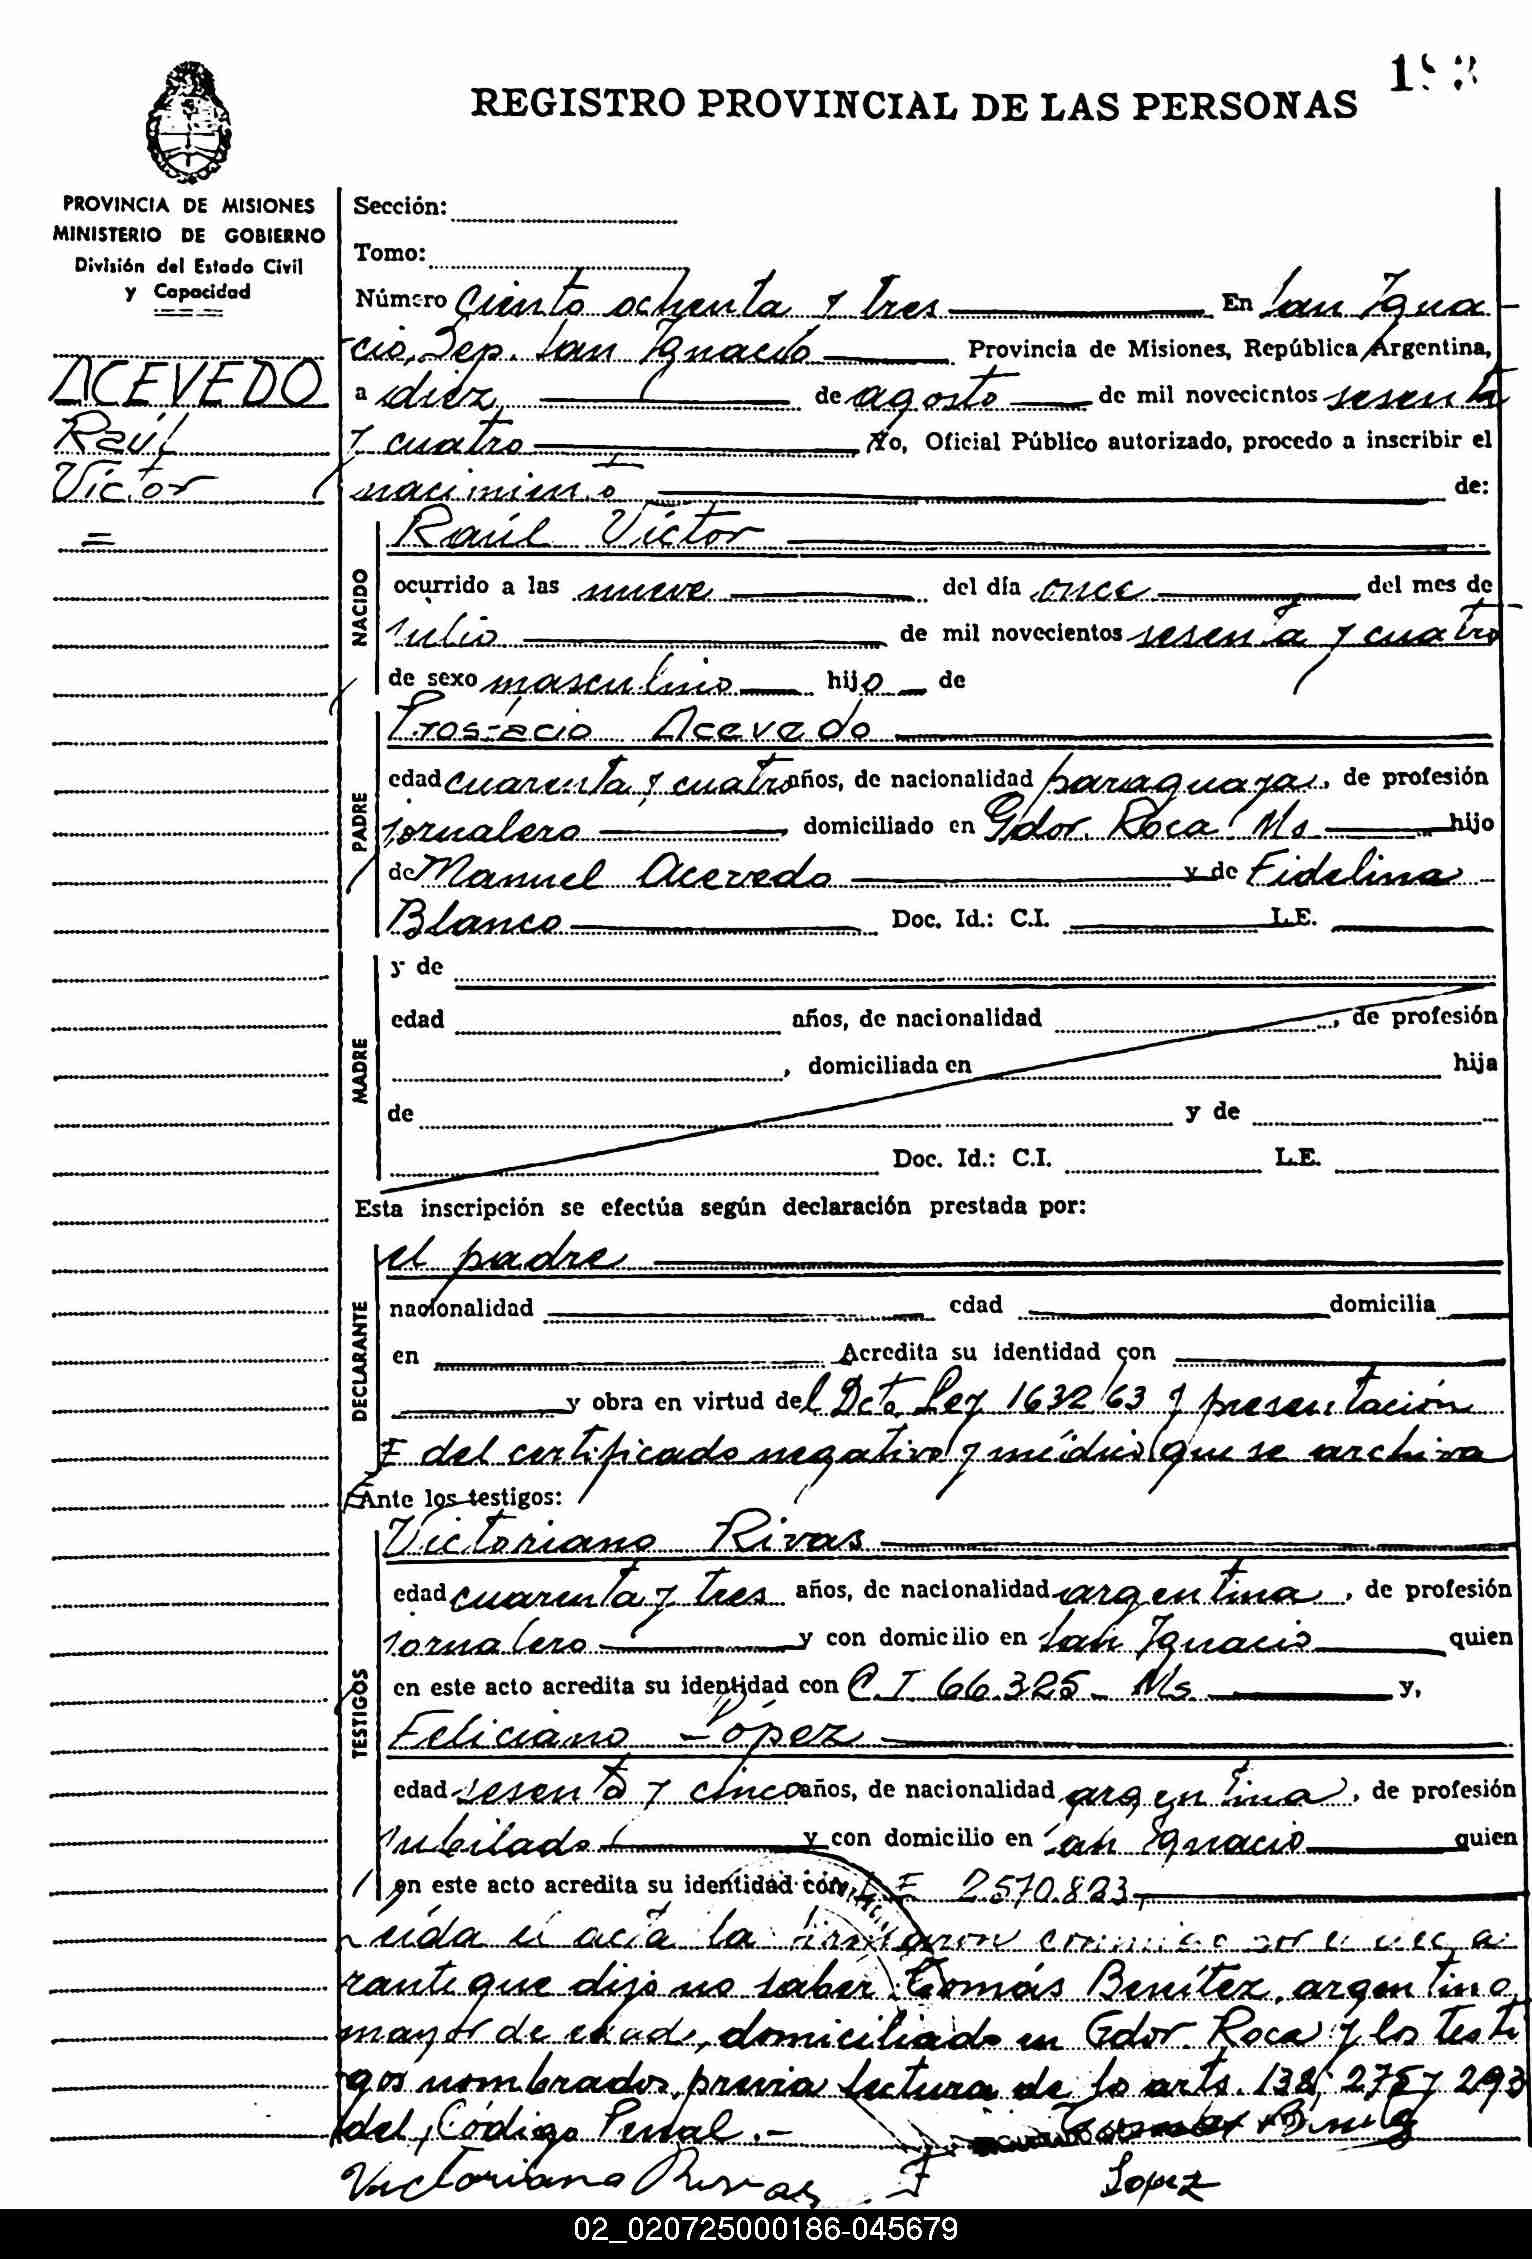 REGISTRO PROVINCIAL DE LAS PERSONAS
PROVINCIA DE MISIONES
MINISTERIO DE GOBIERNO
División del Estado Civil
y Capacidad
ACEVEDO
Raúl
Víctor
=
Sección:
Tomo:
Número Ciento ochenta y tres En San Igna-
cio, Dep. San Ignacio Provincia de Misiones, República Argentina,
a diez de agosto de mil novecientos sesenta
y cuatro Yo, Oficial Público autorizado, procedo a inscribir el
nacimiento de:
NACIDO
Raúl Víctor
ocurrido a las nueve del día once del mes de
julio de mil novecientos sesenta y cuatro
de sexo masculino hijo de
PADRE
Acevedo
edad cuarenta y cuatro años, de nacionalidad paraguaya, de profesión
jornalero domiciliado en Gdor. Roca Ms hijo
de Manuel Acevedo y de Fidelina
Blanco Doc. Id.: C.I. L.E.
MADRE
y de
edad años, de nacionalidad , de profesión
, domiciliada en hija
de y de
Doc. Id.: C.I. L.E.
Esta inscripción se efectúa según declaración prestada por:
DECLARANTE
el padre
nacionalidad edad domicilia
en Acredita su identidad con
y obra en virtud del Dcto. Ley 1632/63 y presentación
del certificado negativo y médico que se archiva
Ante los testigos:
TESTIGOS
Victoriano Rivas
edad cuarenta y tres años, de nacionalidad argentina, de profesión
jornalero y con domicilio en San Ignacio quien
en este acto acredita su identidad con C.I 66.325 Ms y,
Feliciano López
edad sesenta y cinco años, de nacionalidad argentina, de profesión
jubilado y con domicilio en San Ignacio quien
en este acto acredita su identidad con L E 2570.823
Leída el acta la firmaron conmigo por el decla
rante que dijo no saber Tomás Benítez, argentino,
mayor de edad, domiciliado en Gdor. Roca y los testi
gos nombrados, previa lectura de lo arts. 138, 275 y 293
del Código Penal.-
Victoriano Rivas F López
02_020725000186-045679